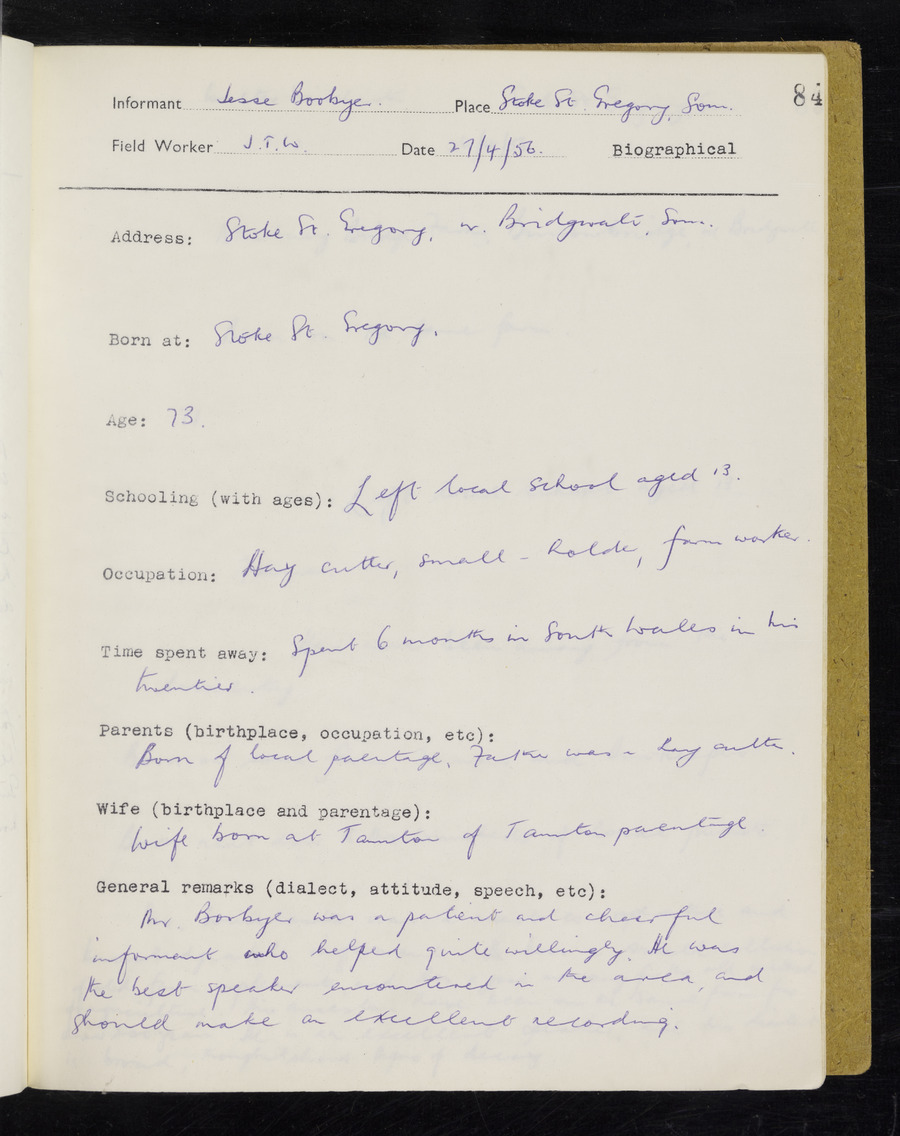 84
Informant Jesse Boobyer. Place Stoke St. Gregory, Som.
Field Worker J.T.W. Date 27/4/56. Biographical
Address: Stoke St. Gregory, nr. Bridgwater, Som.
Born at: Stoke St. Gregory.
Age: 73.
Schooling (with ages): Left local school aged 13.
Occupation: Hay cutter, small-holder, farm worker.
Time spent away: Spent 6 months in South Wales in his
twenties.
Parents (birthplace, occupation, etc):
Born of local parentage. Father was a hay cutter.
Wife (birthplace and parentage):
Wife born at Taunton of Taunton parentage.
General remarks (dialect, attitude, speech, etc):
Mr. Boobyer was a patient and cheerful
informant who helped quite willingly. He was
the best speaker encountered in the area, and
should make an excellent recording.